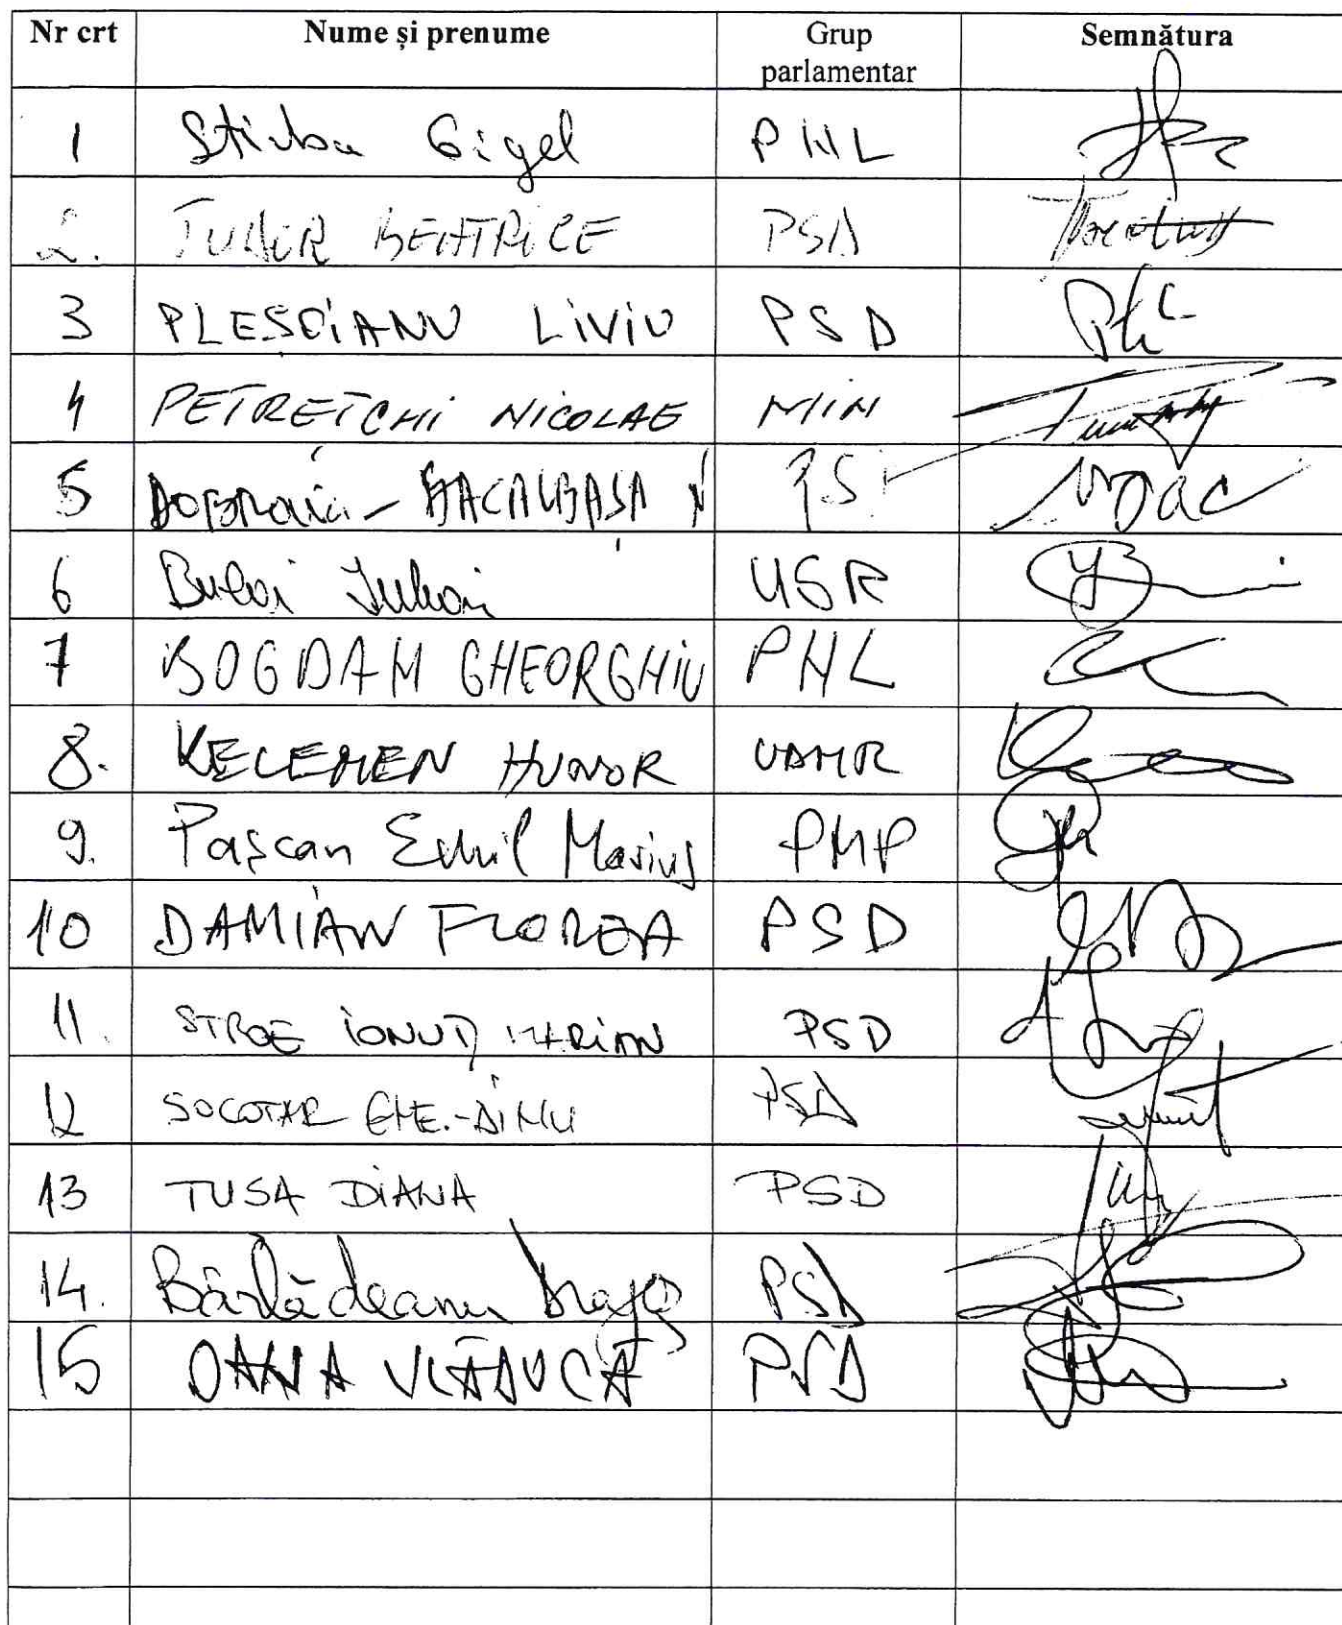 Nr crt Nume și prenume Grup parlamentar Semnătura
1 Știrbu Gigel PNL
2. TUDOR BEATRICE PSD
3 PLEȘOIANU LIVIU PSD
4 PETRETCHI NICOLAE MIN
5 BACALBAȘA N PSD
6 Bulai Iulian USR
7 BOGDAN GHEORGHIU PNL
8. KELEMEN HUNOR UDMR
9. Pașcan Emil Marius PMP
10 DAMIAN FLOREA PSD
11. STROE IONUȚ MARIAN PSD
12 SOCOTAR GHE.-DINU PSD
13 TUSA DIANA PSD
14. Bârlădeanu PSD
15 OANA VLĂDUCĂ PSD